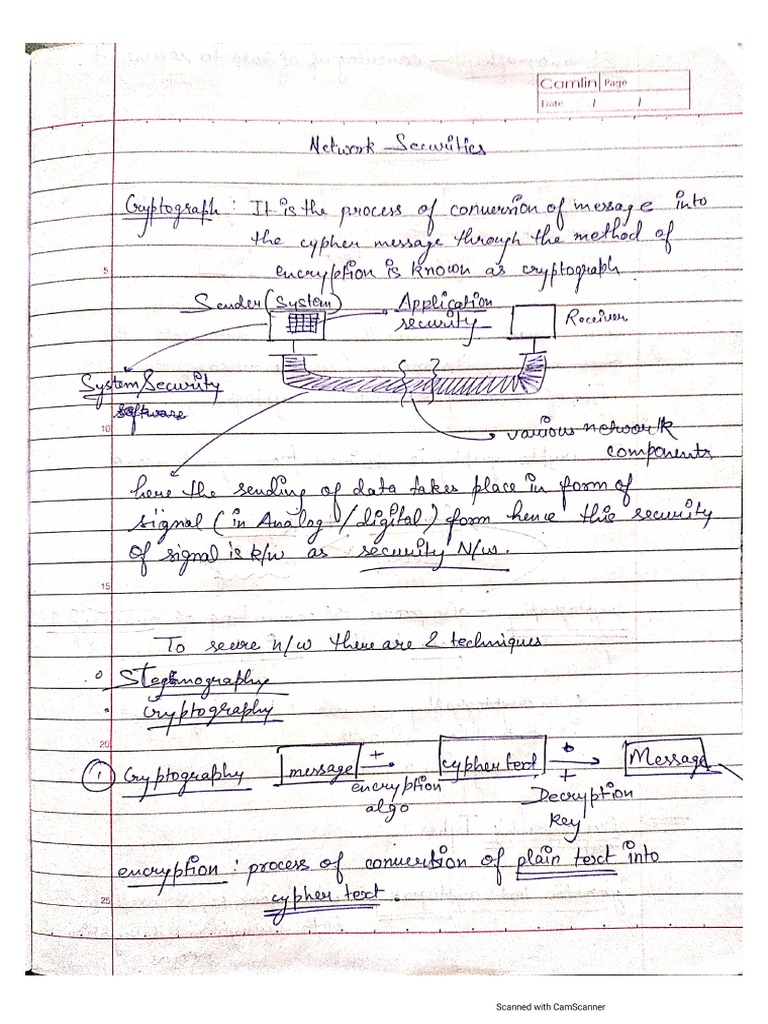 Camlin Page
Date / /
Network Securities
Cryptograph : It is the process of conversion of message into
the cypher message through the method of
encryption is known as cryptograph
5
Sender (System)
Application
security
Receiver
System/Security
software
10
various network
components
here the sending of data takes place in form of
signal (in Analog / digital) form hence this security
of signal is k/w as security N/w.
15
To secure n/w there are 2 techniques
Cryptography
20
1 Cryptography message + cypher text + Message
encryption
algo
Decryption
key
encryption : process of conversion of plain text into
cypher text.
25
Scanned with CamScanner